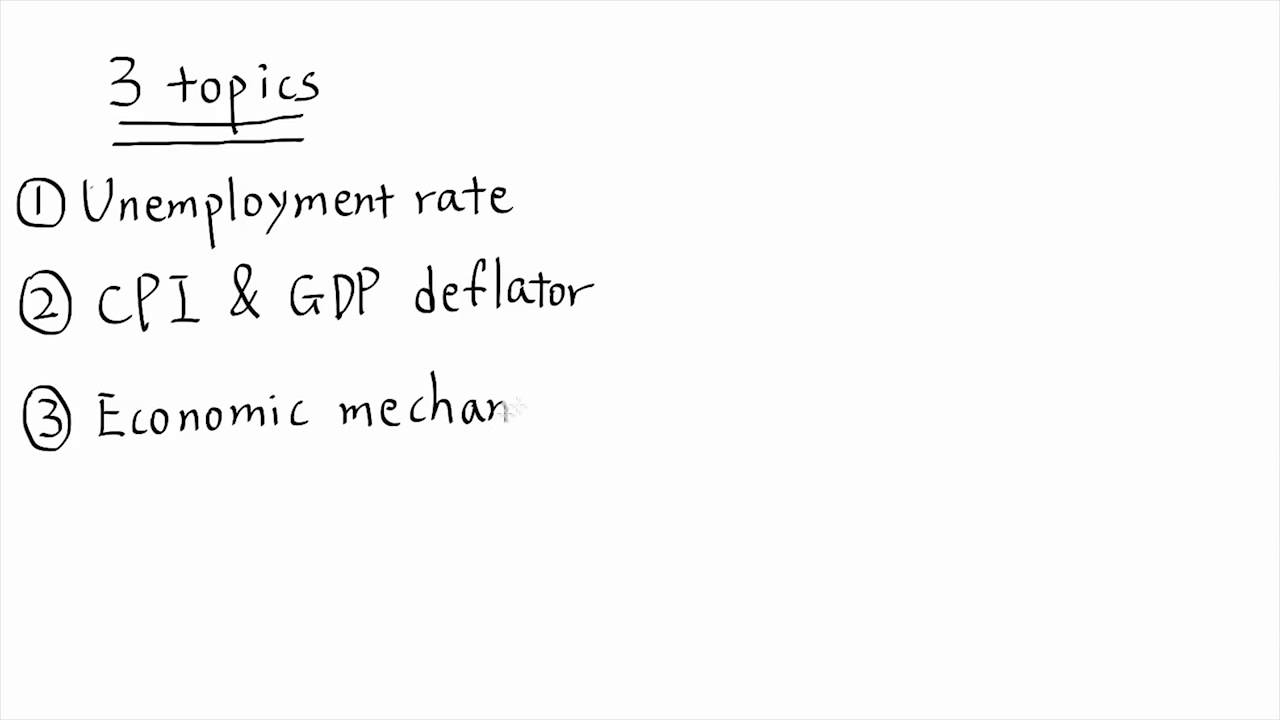 3 topics
① Unemployment rate
② CPI & GDP deflator
③ Economic mechan